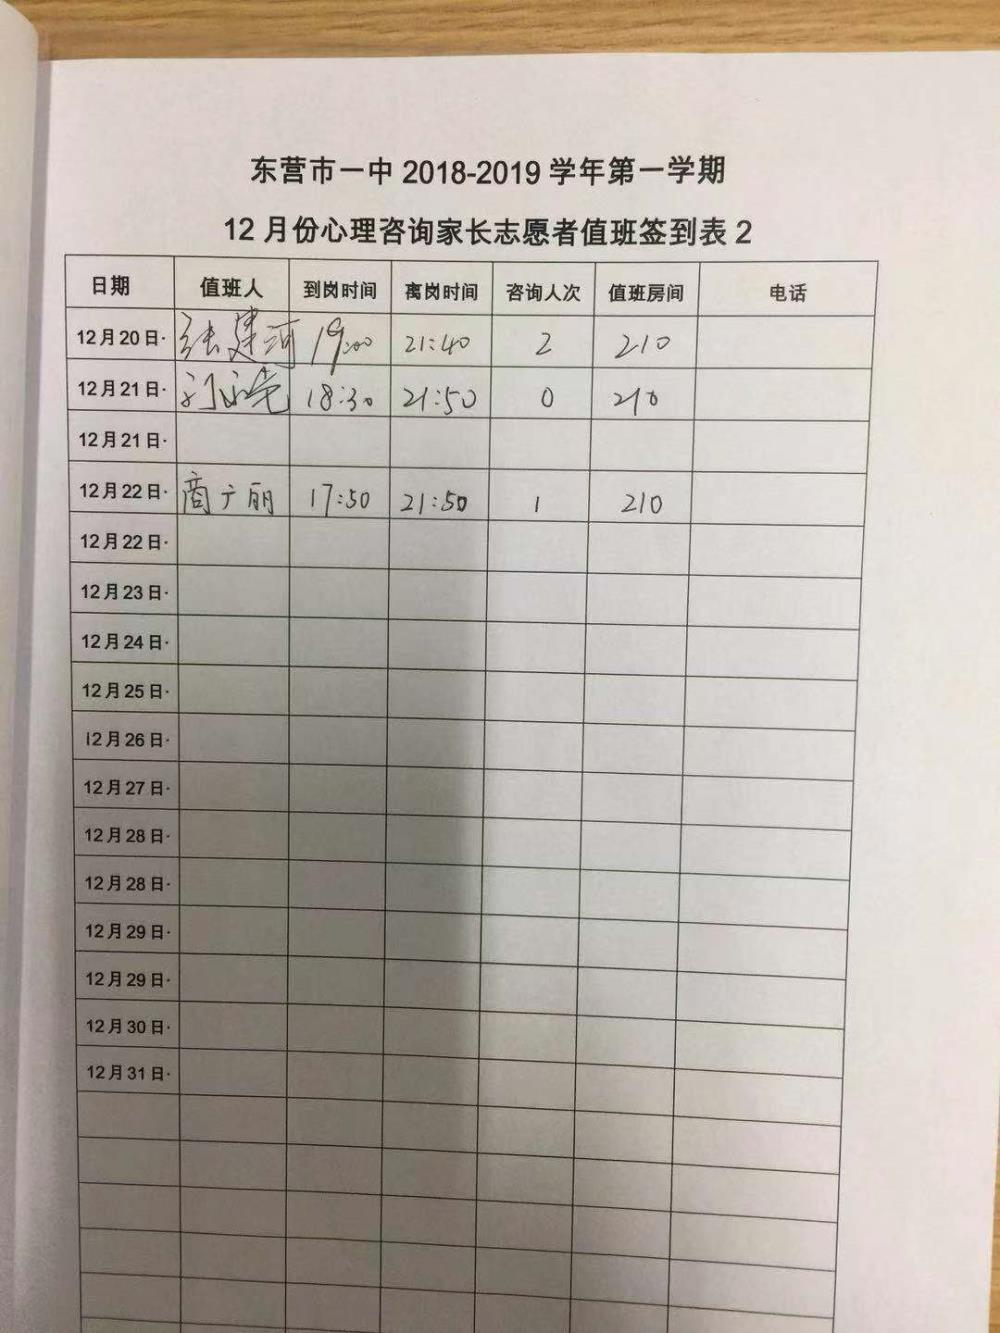 东营市一中 2018-2019 学年第一学期
12 月份心理咨询家长志愿者值班签到表 2
日期 值班人 到岗时间 离岗时间 咨询人次 值班房间 电话
12月20日· 张建河 19:00 21:40 2 210
12月21日· 18:30 21:50 0 210
12月21日·
12月22日· 商广丽 17:50 21:50 1 210
12月22日·
12月23日·
12月24日·
12月25日·
12月26日·
12月27日·
12月28日·
12月28日·
12月29日·
12月29日·
12月30日·
12月31日·